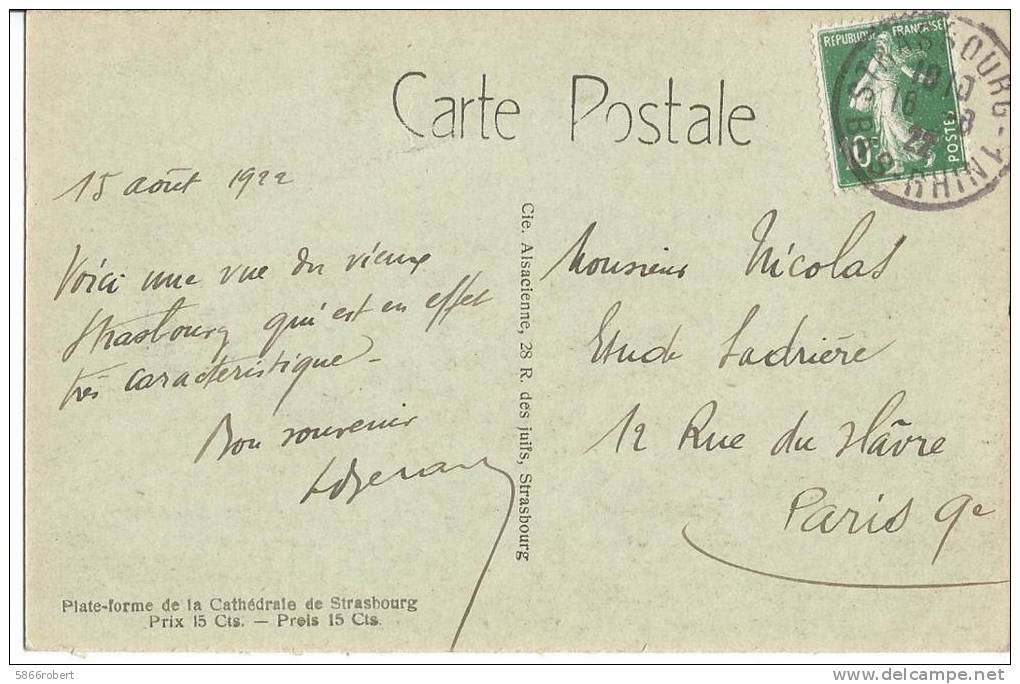 Carte Postale
RÉPUBLIQUE FRANÇAISE
POSTES
10
STRASBOURG-1
BAS-RHIN
16 8
22
15 août 1922
Voici une vue du vieux
Strasbourg qui est en effet
très caractéristique -
Bon souvenir
Cie. Alsacienne, 28 R. des juifs, Strasbourg
Monsieur Nicolas
Etude Ladrière
12 Rue du Hâvre
Paris 9e
Plate-forme de la Cathédrale de Strasbourg
Prix 15 Cts. — Preis 15 Cts.
5866robert
delcampe.net